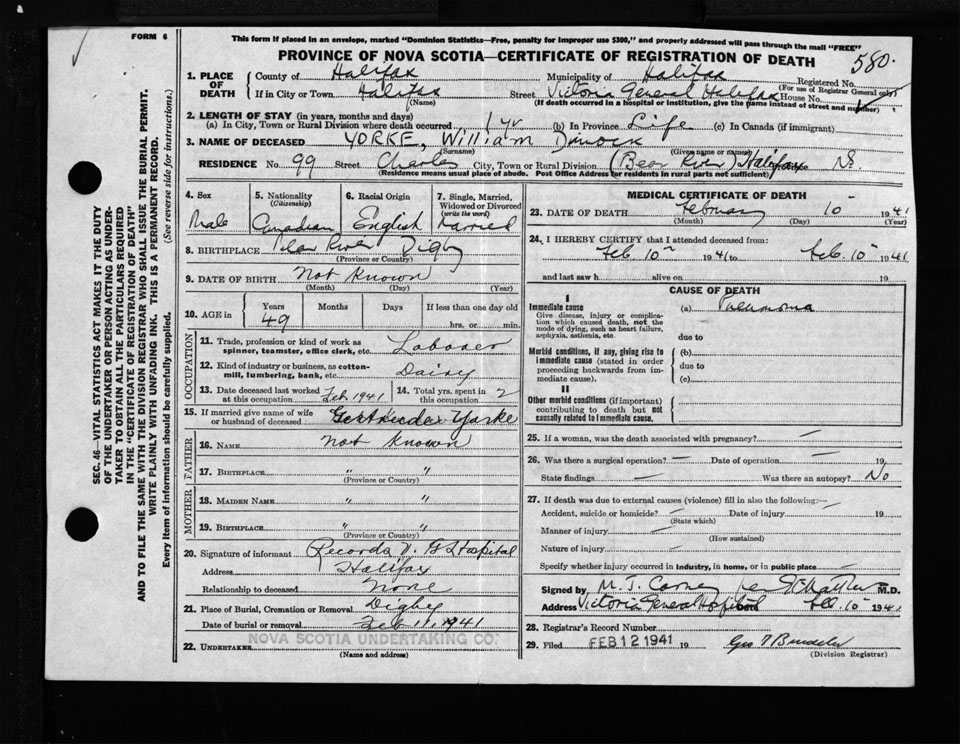 FORM 6
This form if placed in an envelope, marked "Dominion Statistics—Free, penalty for improper use $300," and properly addressed will pass through the mail "FREE"
PROVINCE OF NOVA SCOTIA—CERTIFICATE OF REGISTRATION OF DEATH
580.
1. PLACE OF DEATH
County of Halifax
Municipality of Halifax
Registered No.
(For use of Registrar General only)
If in City or Town Halifax
(Name)
Street Victoria General Halifax House No.
(If death occurred in a hospital or institution, give the name instead of street and number)
2. LENGTH OF STAY (in years, months and days)
(a) In City, Town or Rural Division where death occurred 1 yr (b) In Province Life (c) In Canada (if immigrant)
3. NAME OF DECEASED YORKE, William
(Surname) (Given name or names)
RESIDENCE No. 99 Street Charles City, Town or Rural Division (Bear River) Halifax N.S.
(Residence means usual place of abode. Post Office Address for residents in rural parts not sufficient)
4. Sex
Male
5. Nationality
(Citizenship)
Canadian
6. Racial Origin
English
7. Single, Married,
Widowed or Divorced
(write the word)
Married
8. BIRTHPLACE Bear River Digby
(Province or Country)
9. DATE OF BIRTH Not Known
(Month) (Day) (Year)
10. AGE in
Years Months Days If less than one day old
49
hrs. or min.
OCCUPATION
11. Trade, profession or kind of work as
spinner, teamster, office clerk, etc. Laborer
12. Kind of industry or business, as cotton-
mill, lumbering, bank, etc. Dairy
13. Date deceased last worked
at this occupation Feb 1941
14. Total yrs. spent in
this occupation 2
15. If married give name of wife
or husband of deceased Yorke
FATHER
16. NAME Not Known
17. BIRTHPLACE " "
(Province or Country)
MOTHER
18. MAIDEN NAME " "
19. BIRTHPLACE " "
(Province or Country)
20. Signature of informant Records V. G. Hospital
Address Halifax
Relationship to deceased None
21. Place of Burial, Cremation or Removal Digby
Date of burial or removal Feb 11, 1941
NOVA SCOTIA UNDERTAKING CO.
22. UNDERTAKER
(Name and address)
MEDICAL CERTIFICATE OF DEATH
23. DATE OF DEATH February 10 1941
(Month) (Day)
24. I HEREBY CERTIFY that I attended deceased from:
Feb 10 1941 to Feb. 10 1941
and last saw h alive on 19
CAUSE OF DEATH
I
Immediate cause
Give disease, injury or complica-
tion which caused death, not the
mode of dying, such as heart failure,
asphyxia, asthenia, etc.
(a) Pneumonia
due to
Morbid conditions, if any, giving rise to
immediate cause (stated in order
proceeding backwards from im-
mediate cause).
(b)
due to
(c)
II
Other morbid conditions (if important)
contributing to death but not
causally related to immediate cause.
25. If a woman, was the death associated with pregnancy? —
26. Was there a surgical operation? — Date of operation — 19
State findings — Was there an autopsy? No
27. If death was due to external causes (violence) fill in also the following:—
Accident, suicide or homicide? — Date of injury 19
(State which)
Manner of injury —
(How sustained)
Nature of injury —
Specify whether injury occurred in industry, in home, or in public place —
Signed by M. J. M.D.
Address Victoria General Hospital Feb. 10 1941
28. Registrar's Record Number
29. Filed FEB 12 1941 19
(Division Registrar)
SEC. 46—VITAL STATISTICS ACT MAKES IT THE DUTY
OF THE UNDERTAKER OR PERSON ACTING AS UNDER-
TAKER TO OBTAIN ALL THE PARTICULARS REQUIRED
IN THE "CERTIFICATE OF REGISTRATION OF DEATH"
AND TO FILE THE SAME WITH THE DIVISION REGISTRAR WHO SHALL ISSUE THE BURIAL PERMIT.
WRITE PLAINLY WITH UNFADING INK. THIS IS A PERMANENT RECORD.
Every item of information should be carefully supplied. (See reverse side for instructions.)